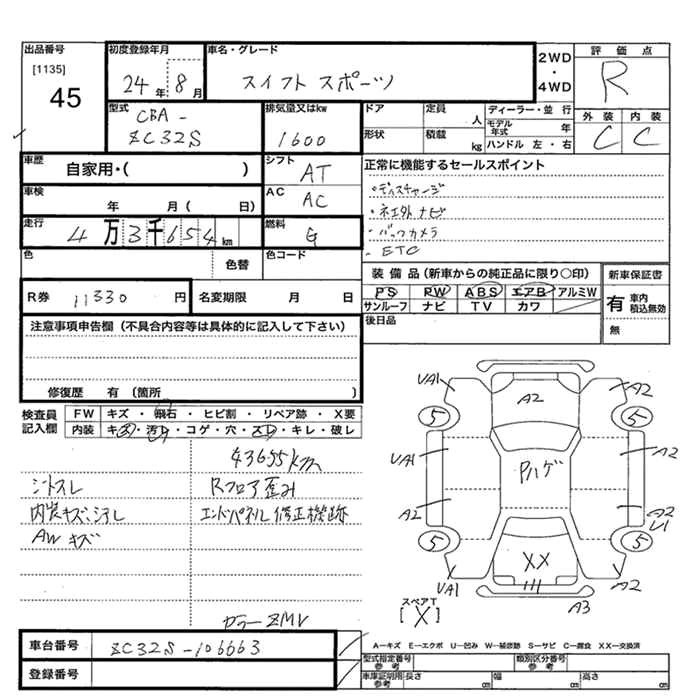 出品番号 [1135] 45
初度登録年月 24年 8月
車名・グレード スイフト スポーツ
2WD・4WD
評価点 R
外装 C 内装 C
型式 CBA- ZC32S
排気量又はkw 1600
ドア 形状
定員 人 積載 kg
ディーラー・並行
モデル年式 年
ハンドル 左・右
車歴 自家用・( )
シフト AT
車検 年 月( 日)
AC AC
走行 4万3千654km
燃料 G
色 色替
色コード
正常に機能するセールスポイント
・ディスチャージ
・ネエタト ナビ
・バックカメラ
・ETC
R券 11330円
名変期限 月 日
装備品(新車からの純正品に限り○印)
PS PW ABS エアB アルミW
サンルーフ ナビ TV カワ
新車保証書
有 車内積込無効
無
後日品
注意事項申告欄(不具合内容等は具体的に記入して下さい)
修復歴 有(箇所 )
検査員記入欄
FW キズ・飛石・ヒビ割・リペア跡・X要
内装 キズ・汚レ・コゲ・穴・スレ・キレ・破レ
43655km
シートスレ
Rフロア歪み
内装キズ、シテレ
エンドパネル修正機跡
AWキズ
カラーZMV
車台番号 ZC32S-106663
登録番号
UA1 A2 A2
5 5
UA1 Pハゲ A2
A2 A2 U1
5 5
XX
UA1 A2
A3
スペアT
[X]
A―キズ E―エクボ U―凹み W―補修跡 S―サビ C―腐食 XX―交換済
型式指定番号 参考
類別区分番号 参考
車庫証明用 参考 長さ cm 幅 cm 高さ cm